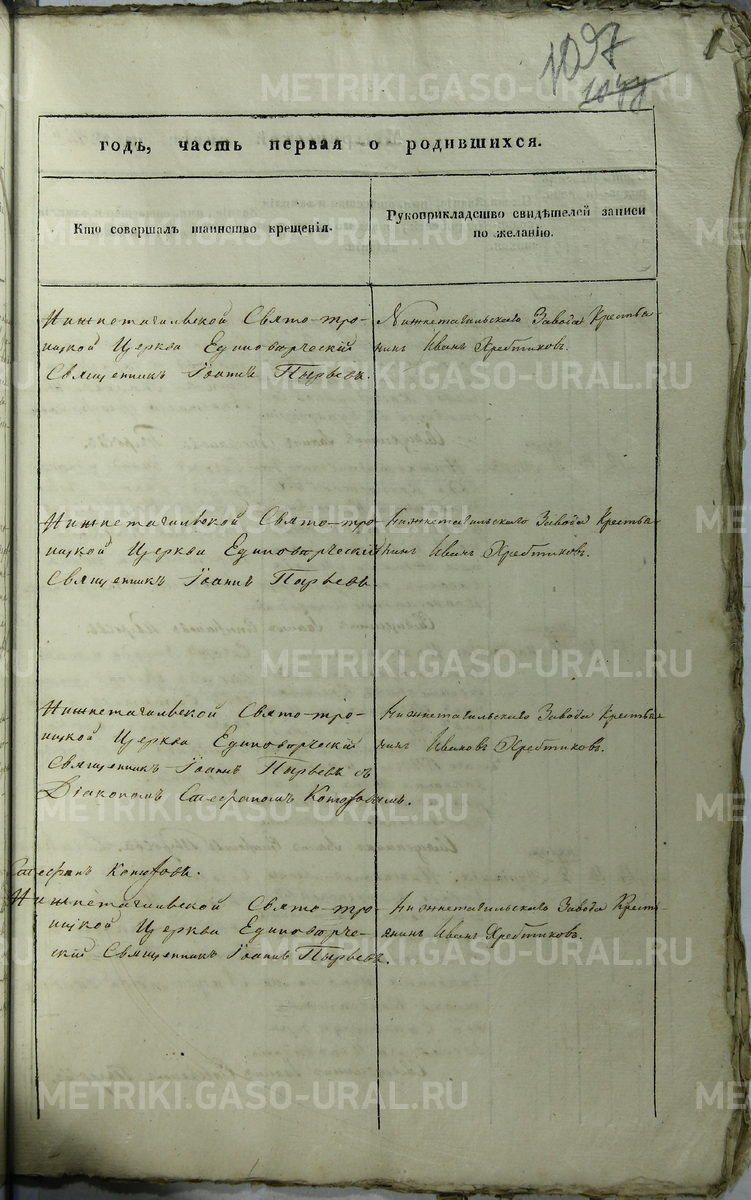 1097
годъ, часть первая о родившихся.
Кто совершалъ таинство крещенія.
Рукоприкладство свидѣтелей записи
по желанію.
Нижнетагильской Свято-тро-
ицкой Церкви Единоверческій
Священникъ Іоаннъ Пырьевъ.
Нижнетагильскаго Завода Крестья-
нинъ Иванъ Хребтиковъ.
Нижнетагильской Свято-тро-
ицкой Церкви Единоверческій
Священникъ Іоаннъ Пырьевъ
Нижнетагильскаго Завода Крестья-
нинъ Иванъ Хребтиковъ.
Нижнетагильской Свято-тро-
ицкой Церкви Единоверческій
Священникъ Іоаннъ Пырьевъ съ
Діакономъ Стефаномъ
Нижнетагильскаго Завода Крестья-
нинъ Ивановъ Хребтиковъ.
Стефанъ
Нижнетагильской Свято-тро-
ицкой Церкви Единоверче-
скій Священникъ Іоаннъ Пырьевъ.
Нижнетагильскаго Завода Кресть-
янинъ Иванъ Хребтиковъ.
METRIKI.GASO-URAL.RU